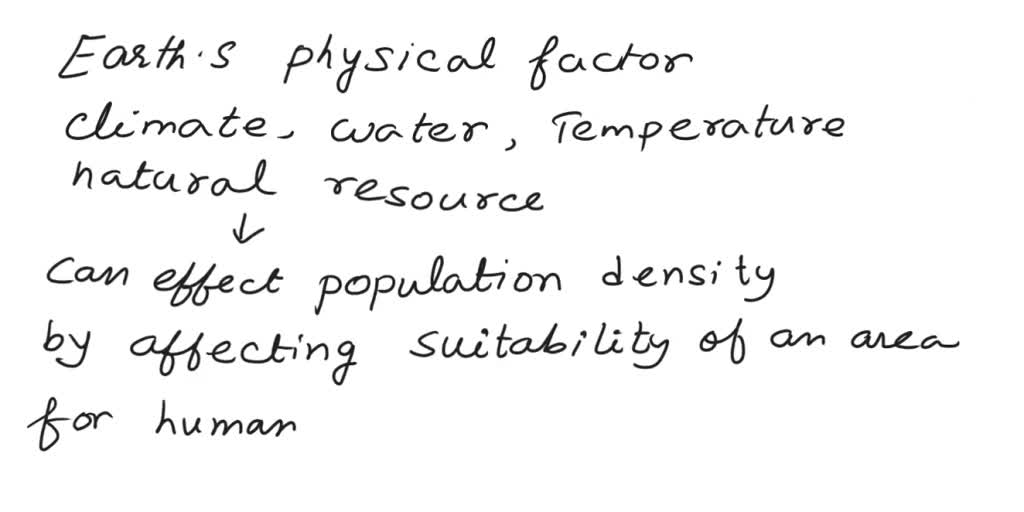 Earth's physical factor
climate, water, Temperature
natural resource
↓
can effect population density
by affecting suitability of an area
for human